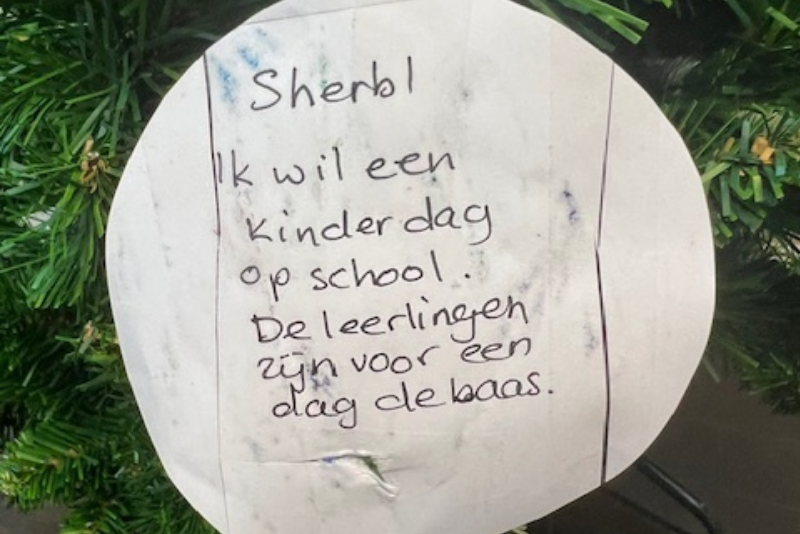 Sherbl
Ik wil een
kinderdag
op school.
De leerlingen
zijn voor een
dag de baas.